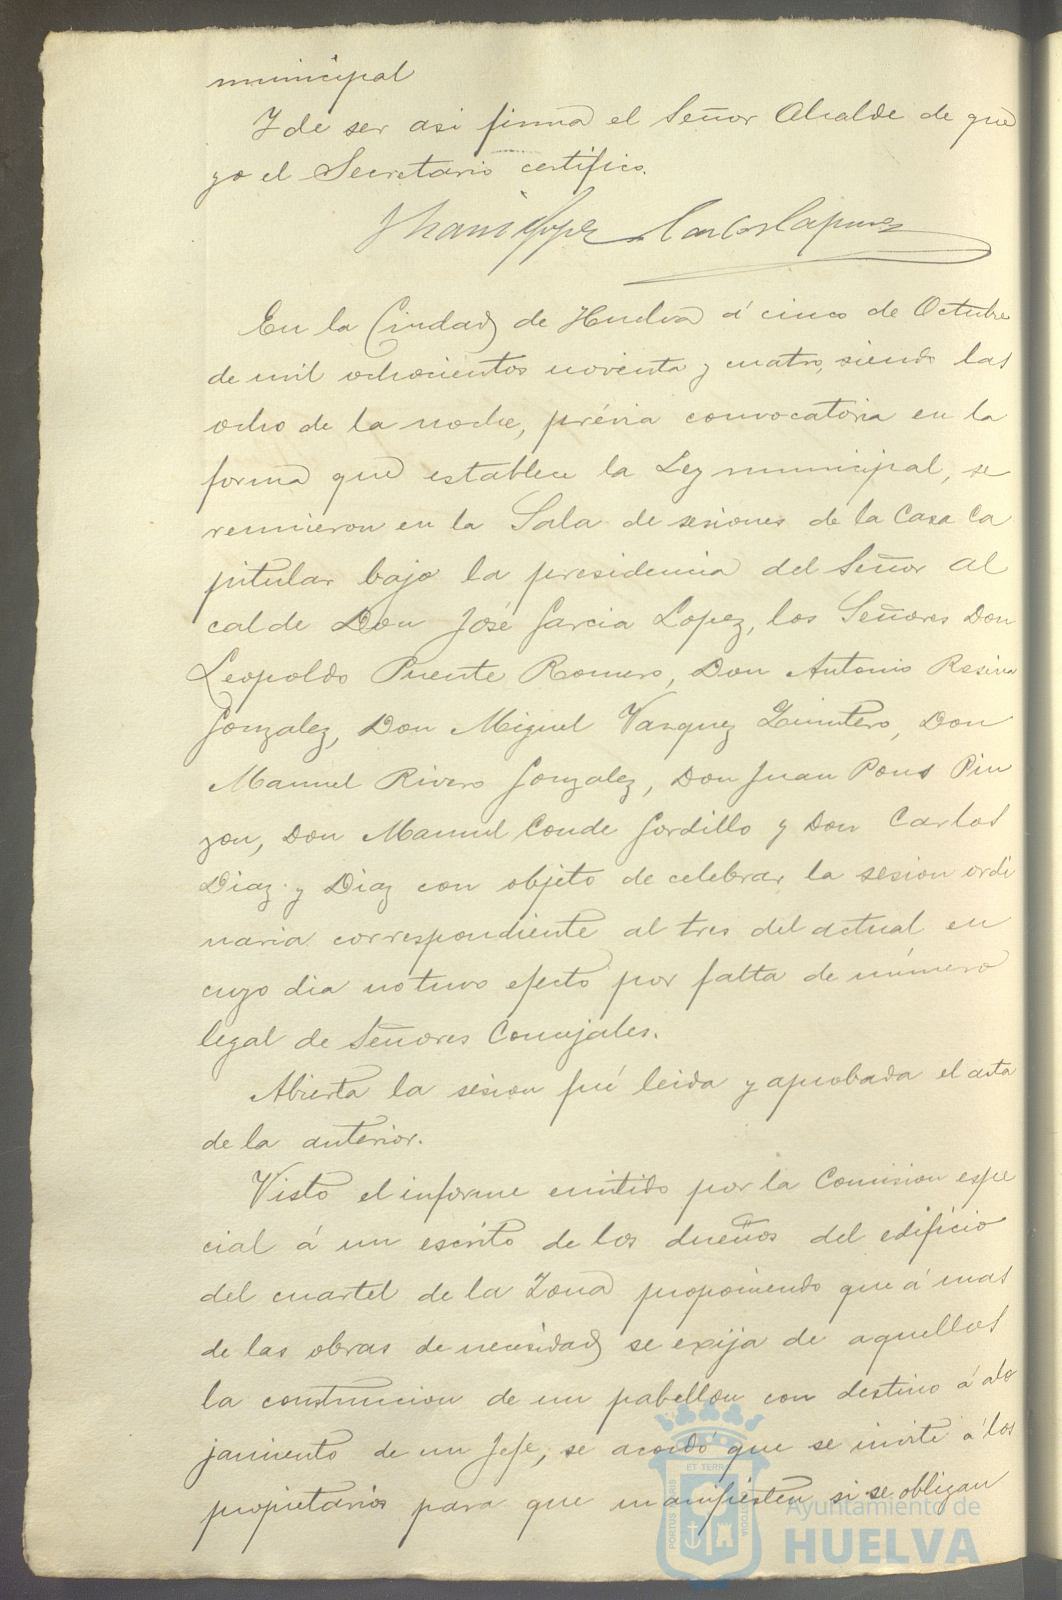 municipal
Y de ser asi firma el Señor Alcalde de que
yo el Secretario certifico.
En la Ciudad de Huelva á cinco de Octubre
de mil ochocientos noventa y cuatro, siendo las
ocho de la noche, prévia convocatoria en la
forma que establece la Ley municipal, se
reunieron en la Sala de sesiones de la Casa Ca
pitular bajo la presidencia del Señor Al
calde Don José Garcia Lopez, los Señores Don
Leopoldo Puente Romero, Don Antonio Resina
Gonzalez, Don Miguel Vazquez Quintero, Don
Manuel Rivero Gonzalez, Don Juan Pons Pin
zon, Don Manuel Conde Gordillo y Don Carlos
Diaz y Diaz con objeto de celebrar la sesion ordi
naria correspondiente al tres del actual en
cuyo dia no tuvo efecto por falta de número
legal de Señores Concejales.
Abierta la sesion fué leida y aprobada el acta
de la anterior.
Visto el informe emitido por la Comision espe
cial á un escrito de los dueños del edificio
del cuartel de la Zona proponiendo que á mas
de las obras de necesidad se exija de aquellos
la construccion de un pabellon con destino á alo
jamiento de un Jefe, se acordó que se invite á los
propietarios para que manifiesten si se obligan
PORTUS MARIS
ET TERRÆ
CUSTODIA
Ayuntamiento de
HUELVA